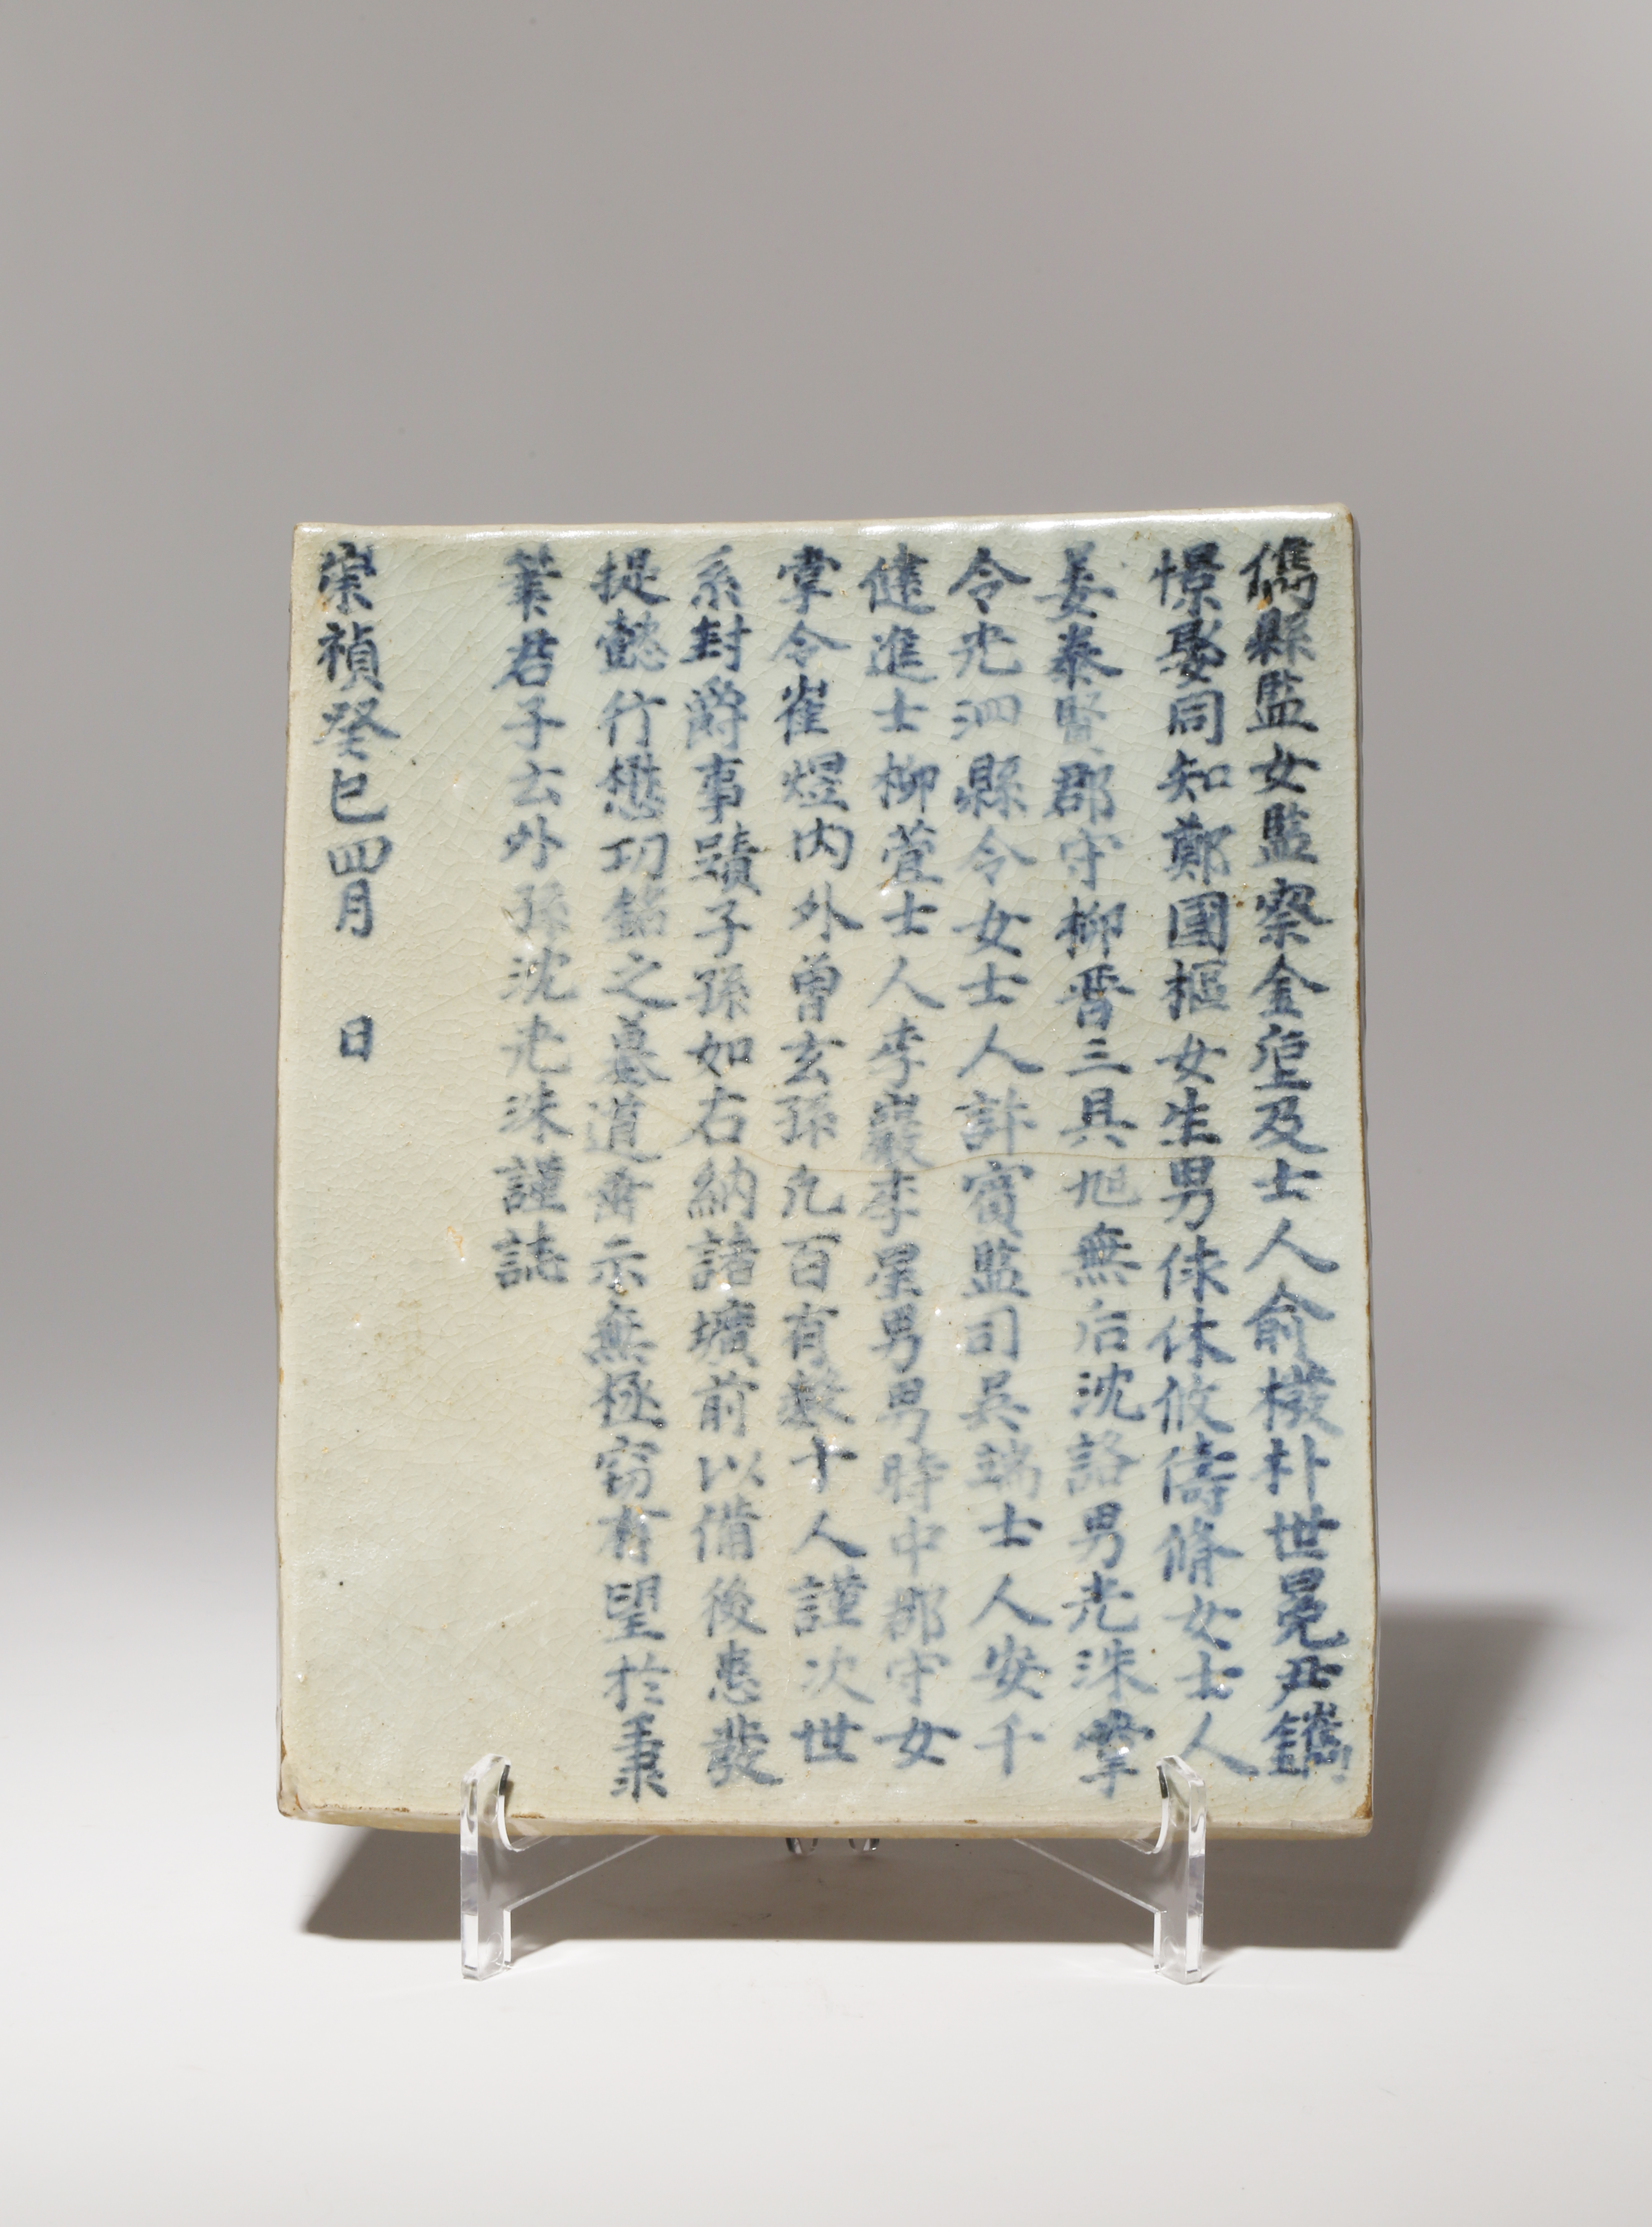 儁縣監女監察金崖及士人俞橃朴世冕尹鑴
憬娶同知鄭國樞女生男倈休攸儔脩女士人
姜泰賢郡守柳晋三具旭無后沈詻男光洙掌
令光泗縣令女士人許賓監司吳端士人安千
健進士柳萱士人李巖李星男男時中郡守女
掌令崔煜内外曾玄孫凢百有數十人謹次世
系封爵事蹟子孫如右納諸壙前以備後患裴
提懿行懋功銘之墓道垂示無極窃有望於秉
筆君子玄外孫沈光洙謹誌
崇禎癸巳四月 日